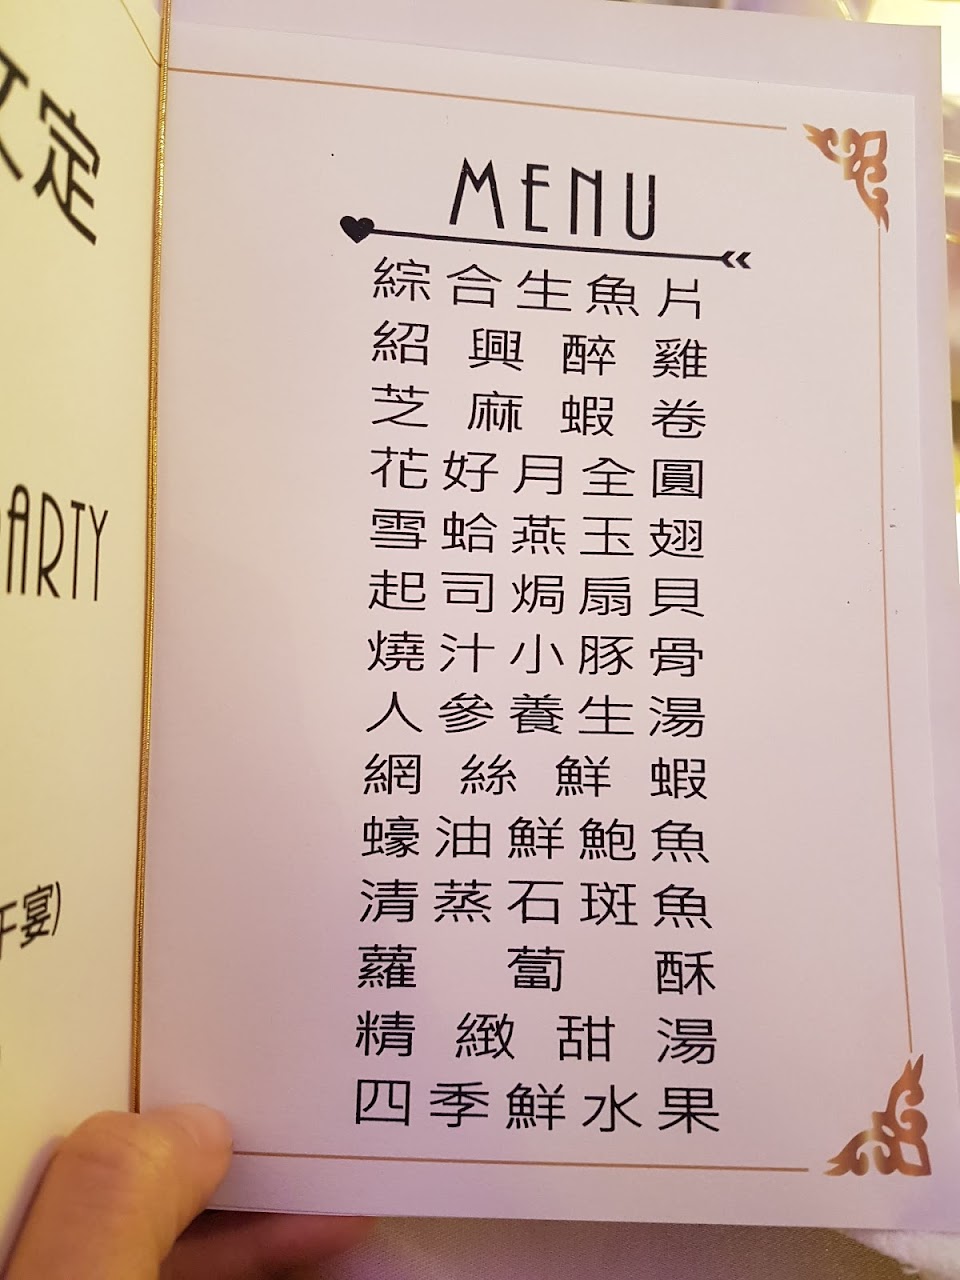 定
ARTY
宴)
MENU
綜合生魚片
紹興醉雞
芝麻蝦卷
花好月全圓
雪蛤燕玉翅
起司焗扇貝
燒汁小豚骨
人參養生湯
網絲鮮蝦
蠔油鮮鮑魚
清蒸石斑魚
蘿蔔酥
精緻甜湯
四季鮮水果